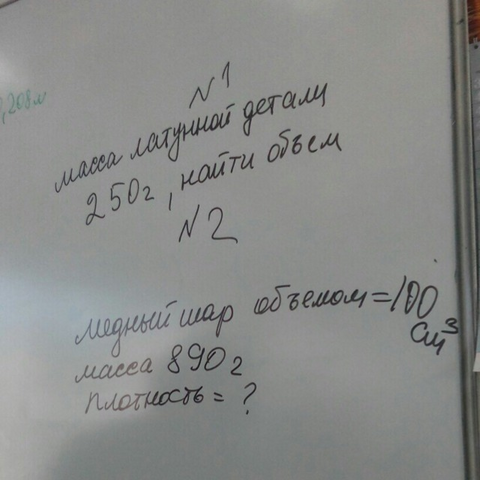 ,208 м
N 1
масса латунной детали
250г, найти объем
N 2
медный шар объемом = 100
см³
масса 890 г
плотность = ?